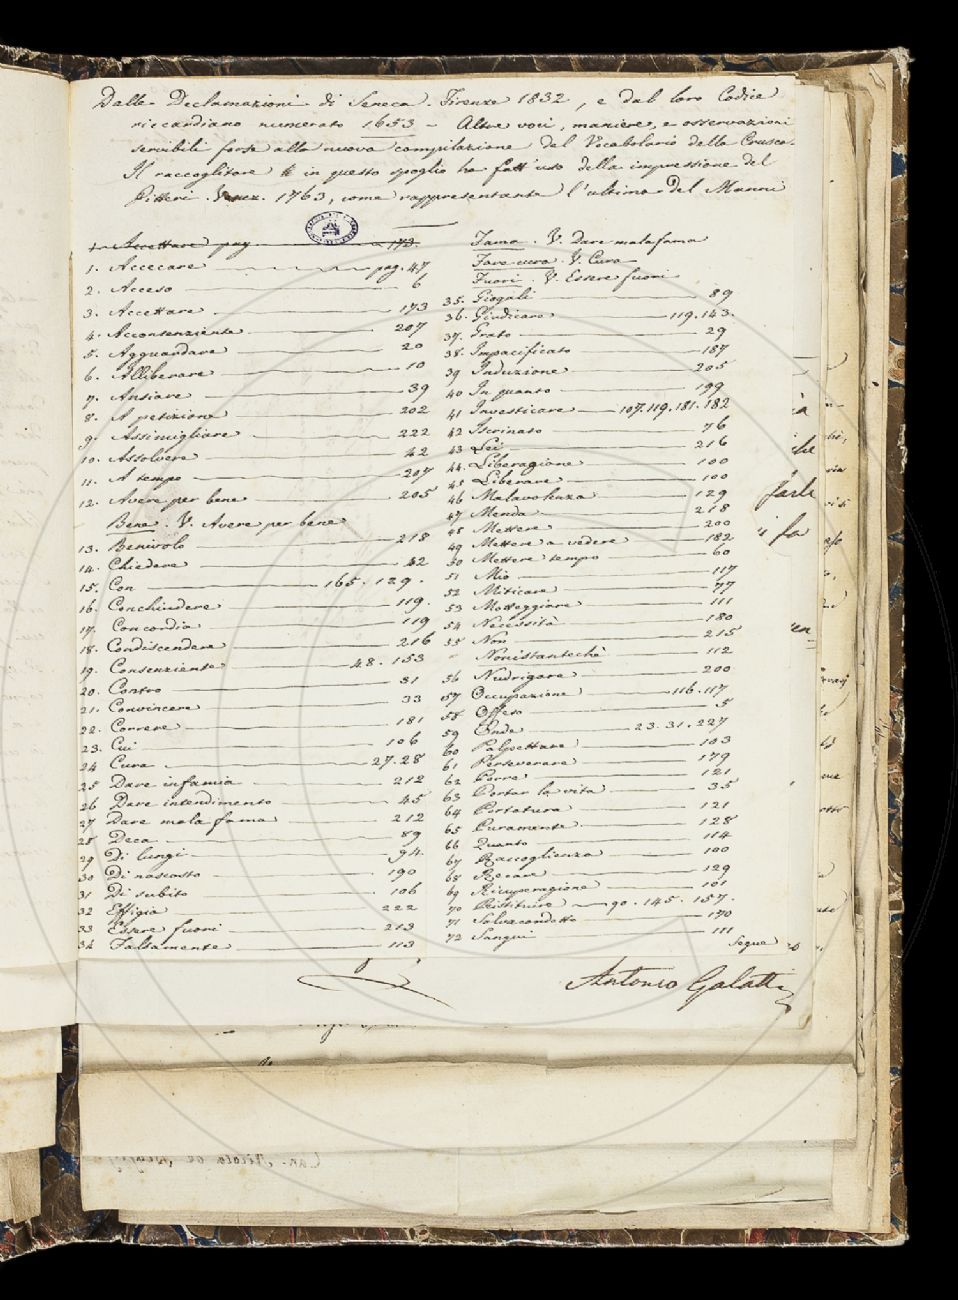 Dalle Declamazioni di Seneca. Firenze 1832, e dal loro Codice
riccardiano numerato 1653 - Altre voci, maniere, e osservazioni
servibili forse alla nuova compilazione del Vocabolario della Crusca.
Il raccoglitore in questo spoglio ha fatt'uso della impressione del
Pitteri. Venez. 1763, come rappresentante l'ultima del Manni
1. Accettare pag 173.
1. Accecare pag. 47
2. Acceso 6
3. Accettare 173
4. Acconsenziente 207
5. Agguardare 20
6. Alliberare 10
7. Ansiare 39
8. A petizione 202
9. Assimigliare 222
10. Assolvere 42
11. A tempo 207
12. Avere per bene 205
Bene. V. Avere per bene
13. Benivolo 218
14. Chiedere 42
15. Con 165. 129.
16. Conchiudere 119.
17. Concordia 119
18. Condiscendere 216
19. Consenziente 48. 153
20. Contro 81
21. Convincere 33
22. Correre 181
23. Cui 106
24 Cura 27. 28
25 Dare infamia 212
26 Dare intendimento 45
27 Dare mala fama 212
28 Deca 89
29 Di lungi 94.
30 Di nascosto 190
31 Di subito 106
32 Effigia 222
33 Essere fuori 213
34 Falsamente 113
Fama. V. Dare mala fama
Fare cura. V. Cura
Fuori. V. Essere fuori
35. Giogali 89
36. Giudicare 119. 143.
37. Grato 29
38. Impacificato 187
39 Induzione 205
40 In quanto 199
41 Investicare 107. 119. 181. 182
42 Iscrinato 76
43 Lei 216
44. Liberagione 100
45 Liberare 100
46 Malavolenza 129
47 Menda 218
48 Mettere 200
49 Mettere a vedere 182
50 Mettere tempo 60
51 Mio 117
52 Miticare 77
53 Motteggiare 111
54 Necessità 180
55 Non 215
Nonistantechè 112
56 Nudrigare 200
57 Occupazione 116. 117
58 Offeso 5
59 Onde 23. 31. 227
60 Palpettare 103
61 Perseverare 179
62 Porre 121
63 Portar la vita 35
64 Portatura 121
65 Puramente 128
66 Quanto 114
67 Raccoglienza 100
68 Recare 129
69 Ricuperagione 101
70 Ristituire 90. 145. 157.
71 Salvacondotto 170
72 Sangui 111
Segue
Antonio Galatti